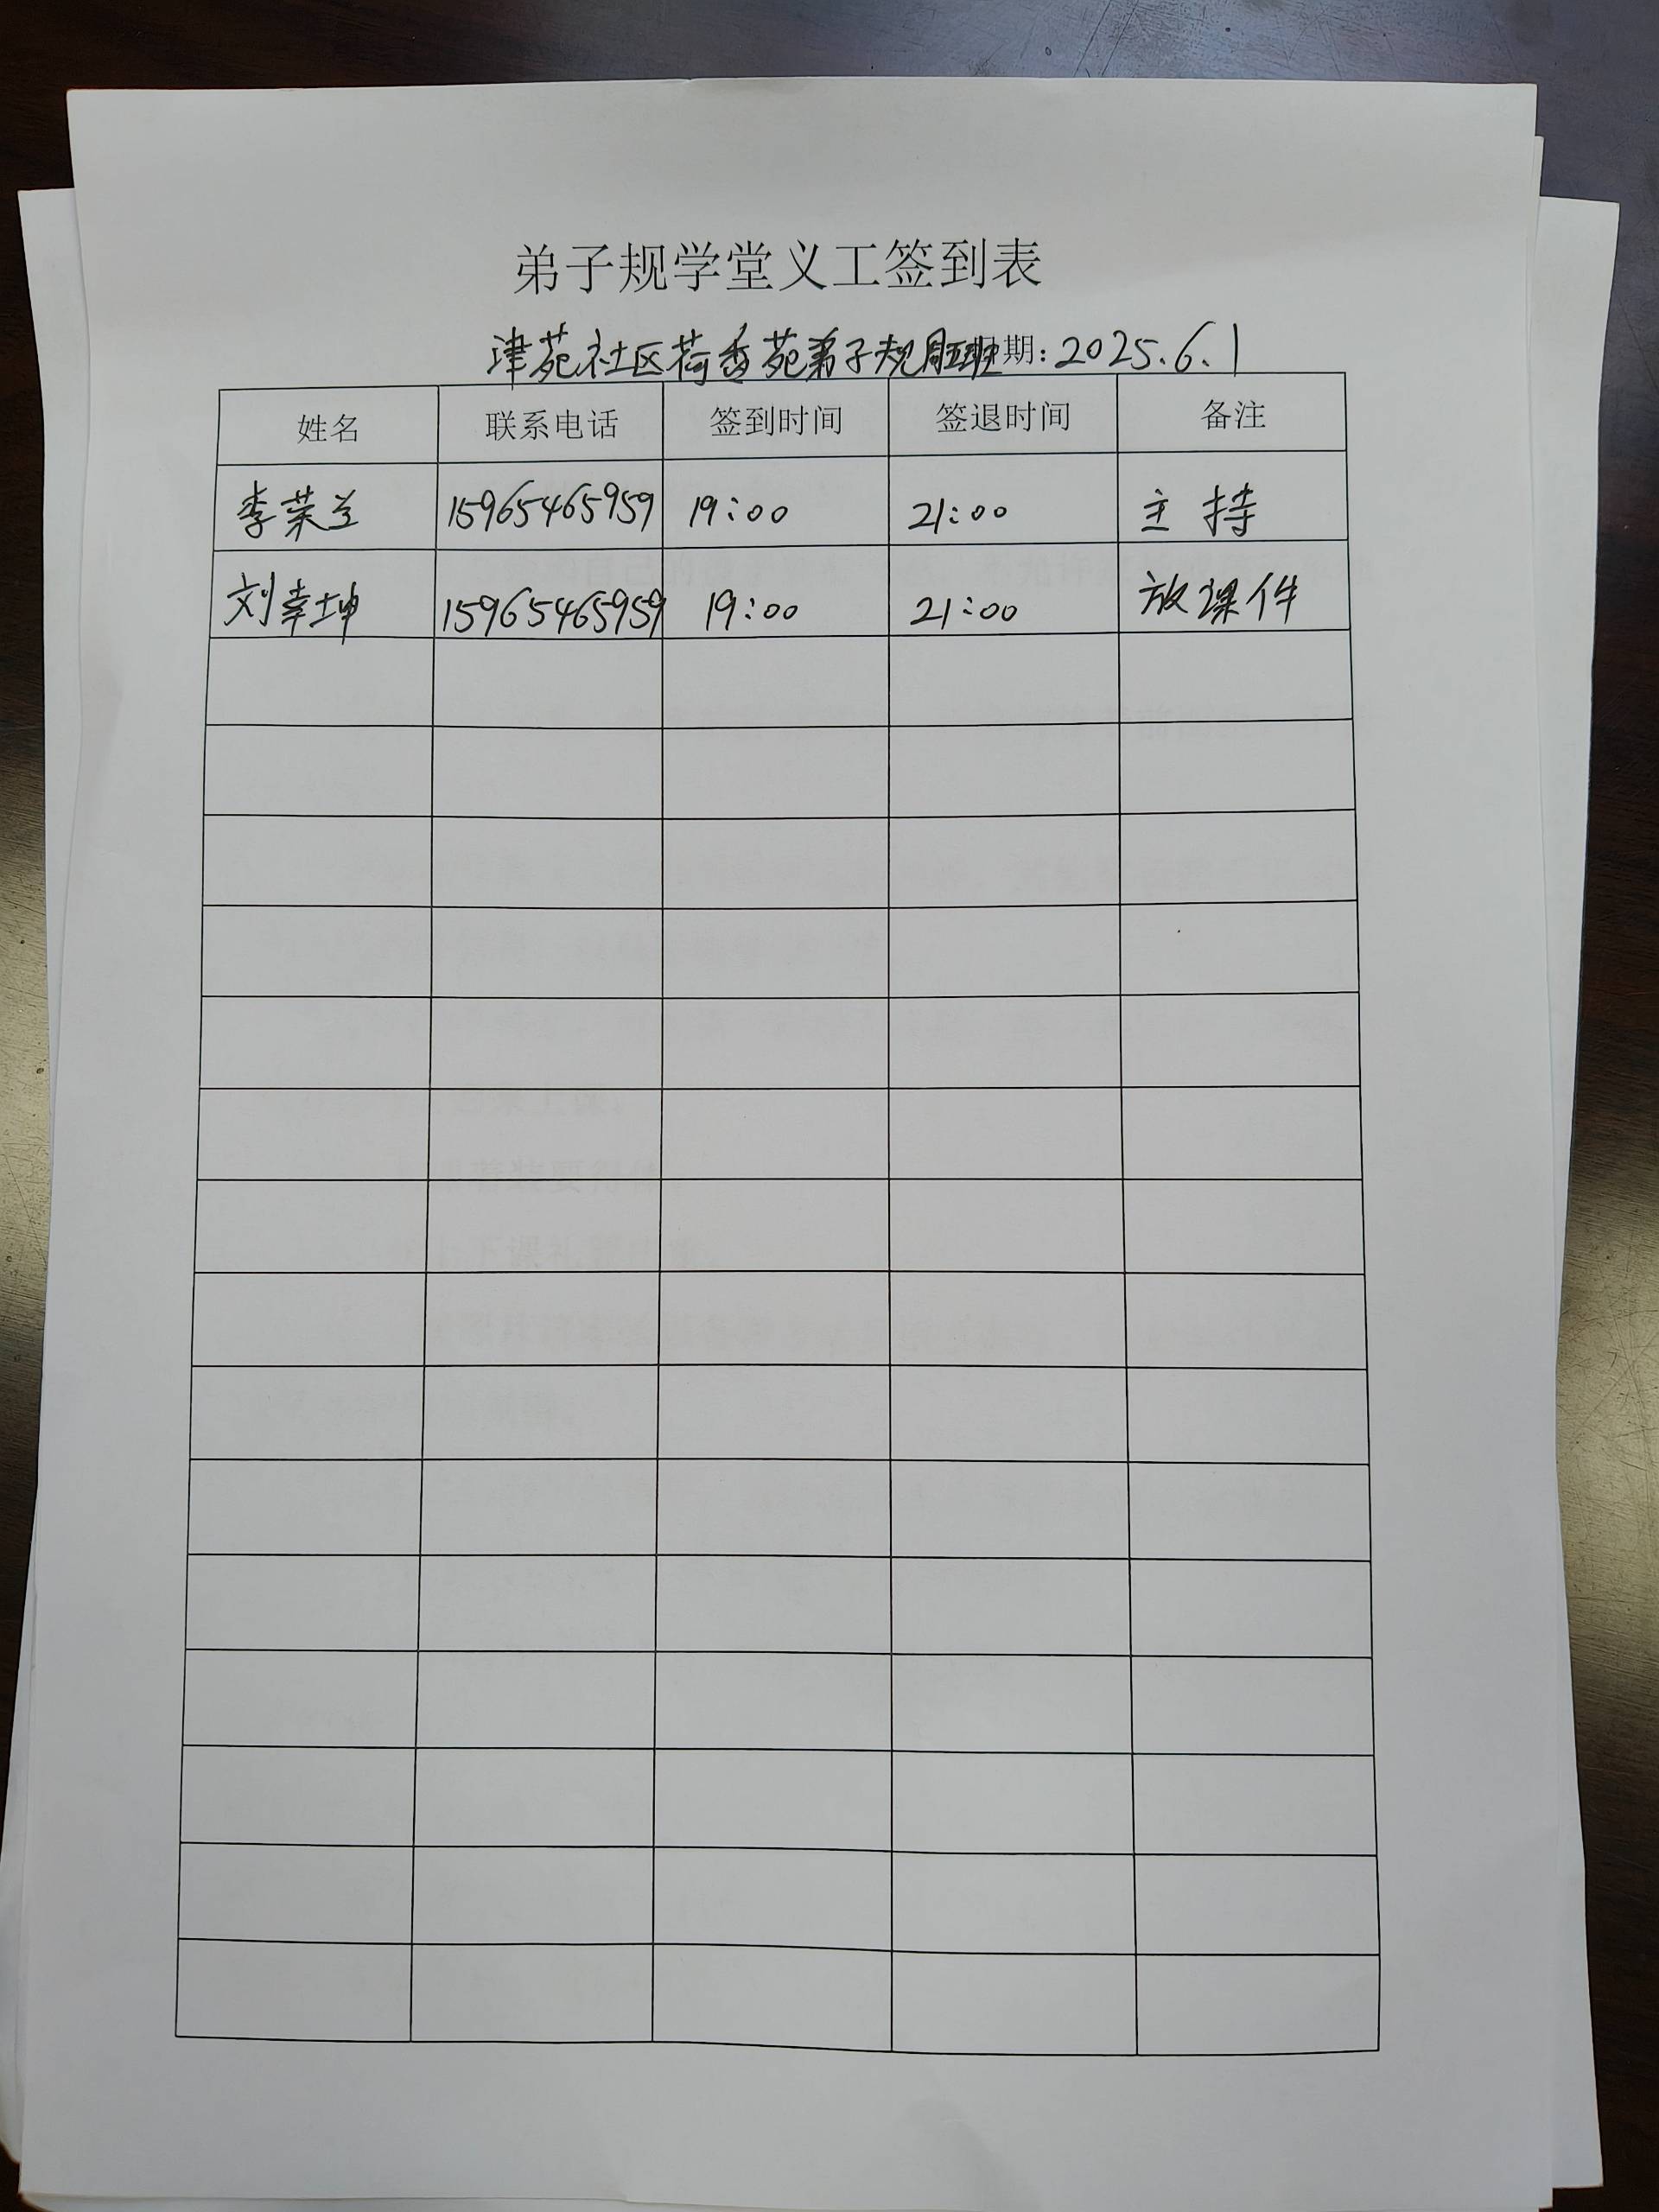 弟子规学堂义工签到表
津苑社区荷香苑弟子规 班 期：2025.6.1
姓名 联系电话 签到时间 签退时间 备注
李荣兰 15965465959 19:00 21:00 主持
刘幸坤 15965465959 19:00 21:00 放课件